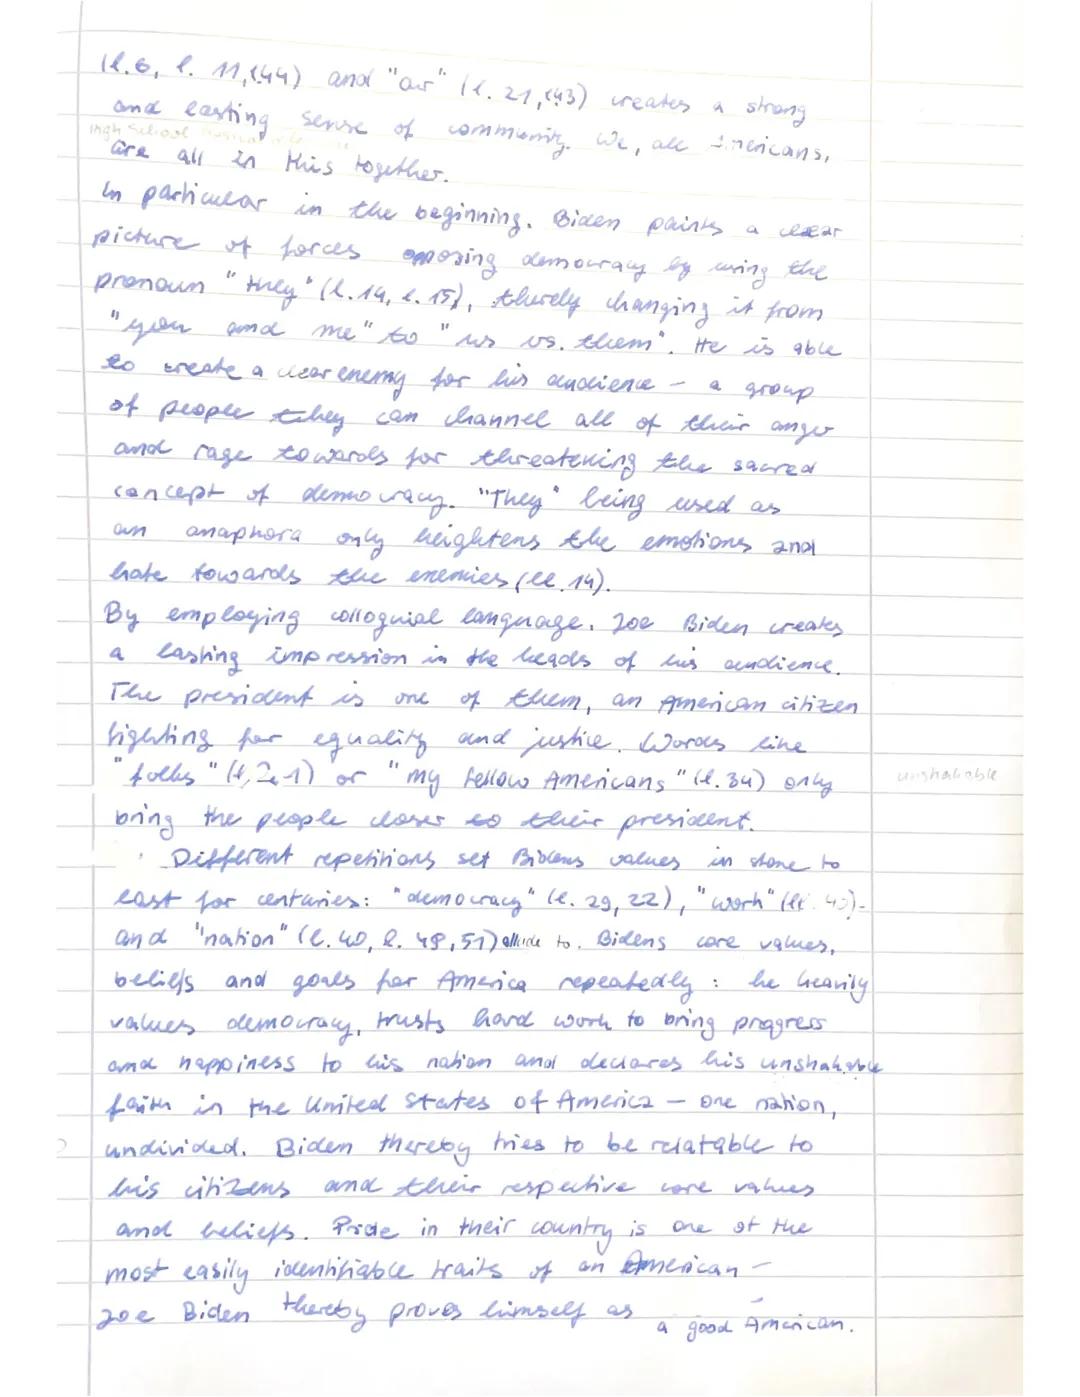 (l.6, l. 11, l.44) and "our" (l. 21, l.43) creates a strong
and lasting sense of community. We, all Americans,
High School Musical
are all in this together.
In particular in the beginning. Biden paints a clear
picture of forces opposing democracy by using the
pronoun "they" (l.14, l.15), thereby changing it from
"you and me" to "us vs. them". He is able
to create a clear enemy for his audience - a group
of people they can channel all of their anger
and rage towards for threatening the sacred
concept of democracy. "They" being used as
an anaphora only heightens the emotions and
hate towards the enemies (ll. 14).
By employing colloquial language. Joe Biden creates
a lasting impression in the heads of his audience.
The president is one of them, an American citizen
fighting for equality and justice. Words like
"folks" or "my fellow Americans" (l.34) only
unshakable
bring the people closer to their president.
Different repetitions set Bidens values in stone to
last for centuries: "democracy" (l. 29, 22), "work"
and "nation" (l. 40, l. 48, 51) allude to. Bidens core values,
beliefs and goals for America repeatedly : he heavily
values democracy, trusts hard work to bring progress
and happiness to his nation and declares his unshakable
faith in the United States of America - one nation,
undivided. Biden thereby tries to be relatable to
his citizens and their respective core values
and beliefs. Pride in their country is one of the
most easily identifiable traits of an American -
Joe Biden thereby proves himself as a good American.